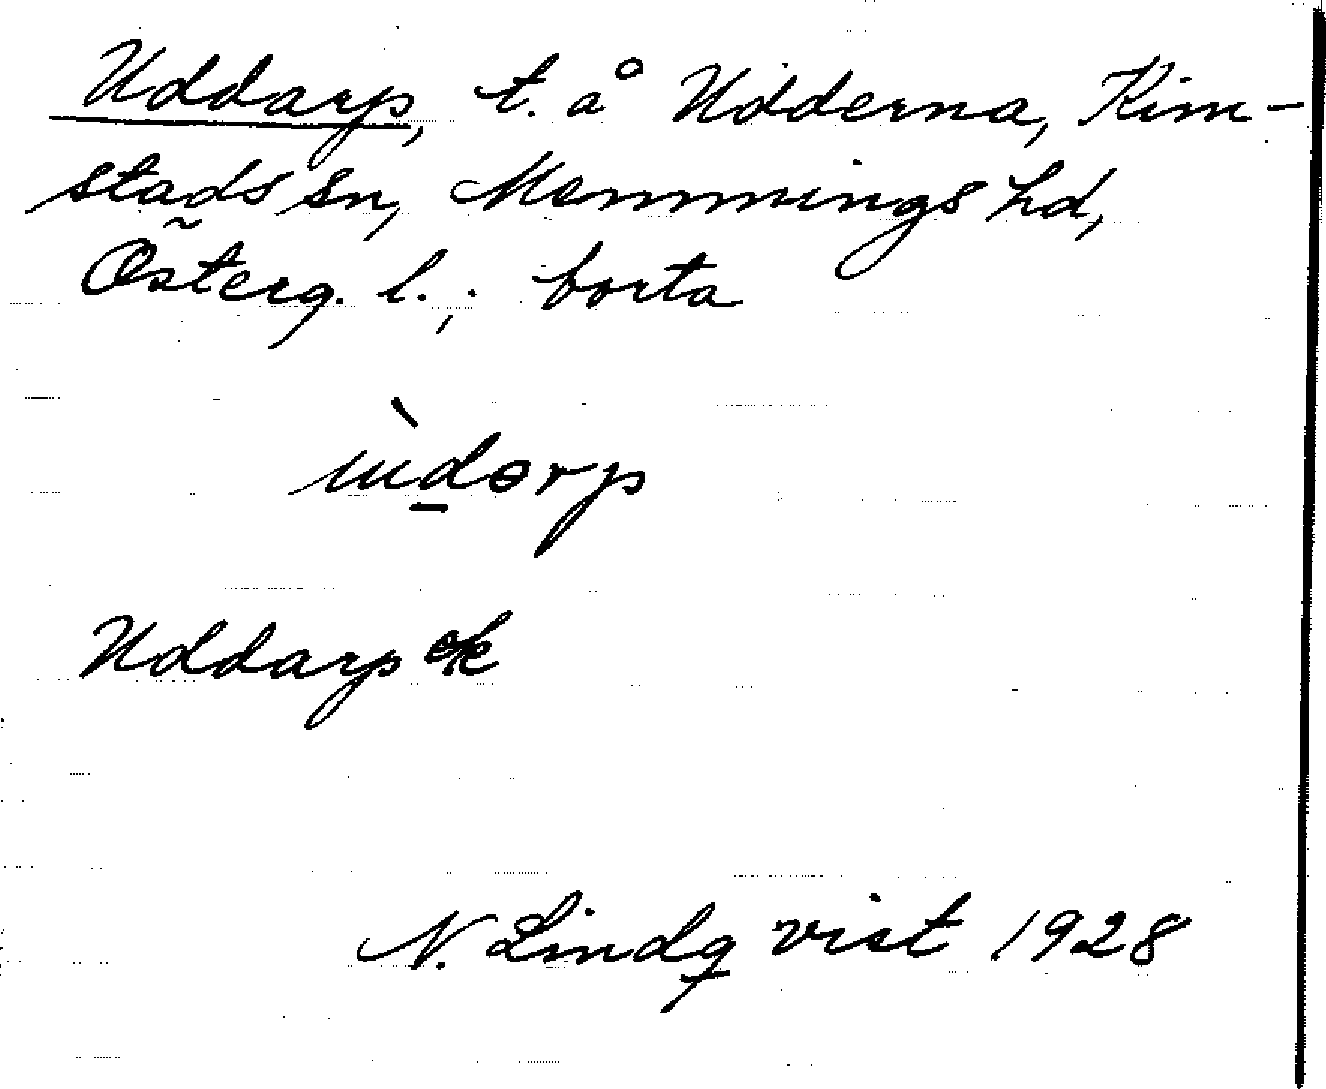 Uddarp, t. å Udderna, Kim-
stads sn, Memmings hd,
Österg. l.; borta
ùdərp
Uddarp ek
N. Lindqvist 1928